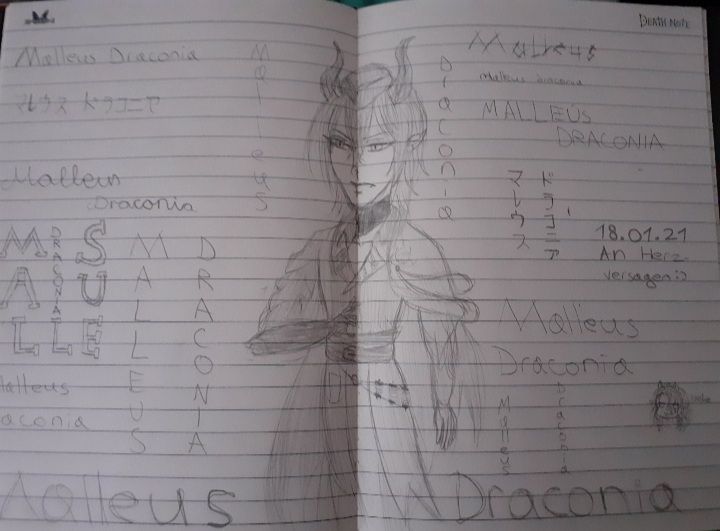 Malleus Draconia
マレウス ドラコニア
Malleus
Draconia
MALLEUS
DRACONIA
MALLEUS
DRACONIA
Malleus
Draconia
Malleus
Malleus
Draconia
DEATH NOTE
Malleus
Malleus Draconia
MALLEUS
DRACONIA
マレウス
ドラコニア
18.01.21
An Herz-
versagen:)
Malleus
Draconia
Malleus
Draconia
Draconia